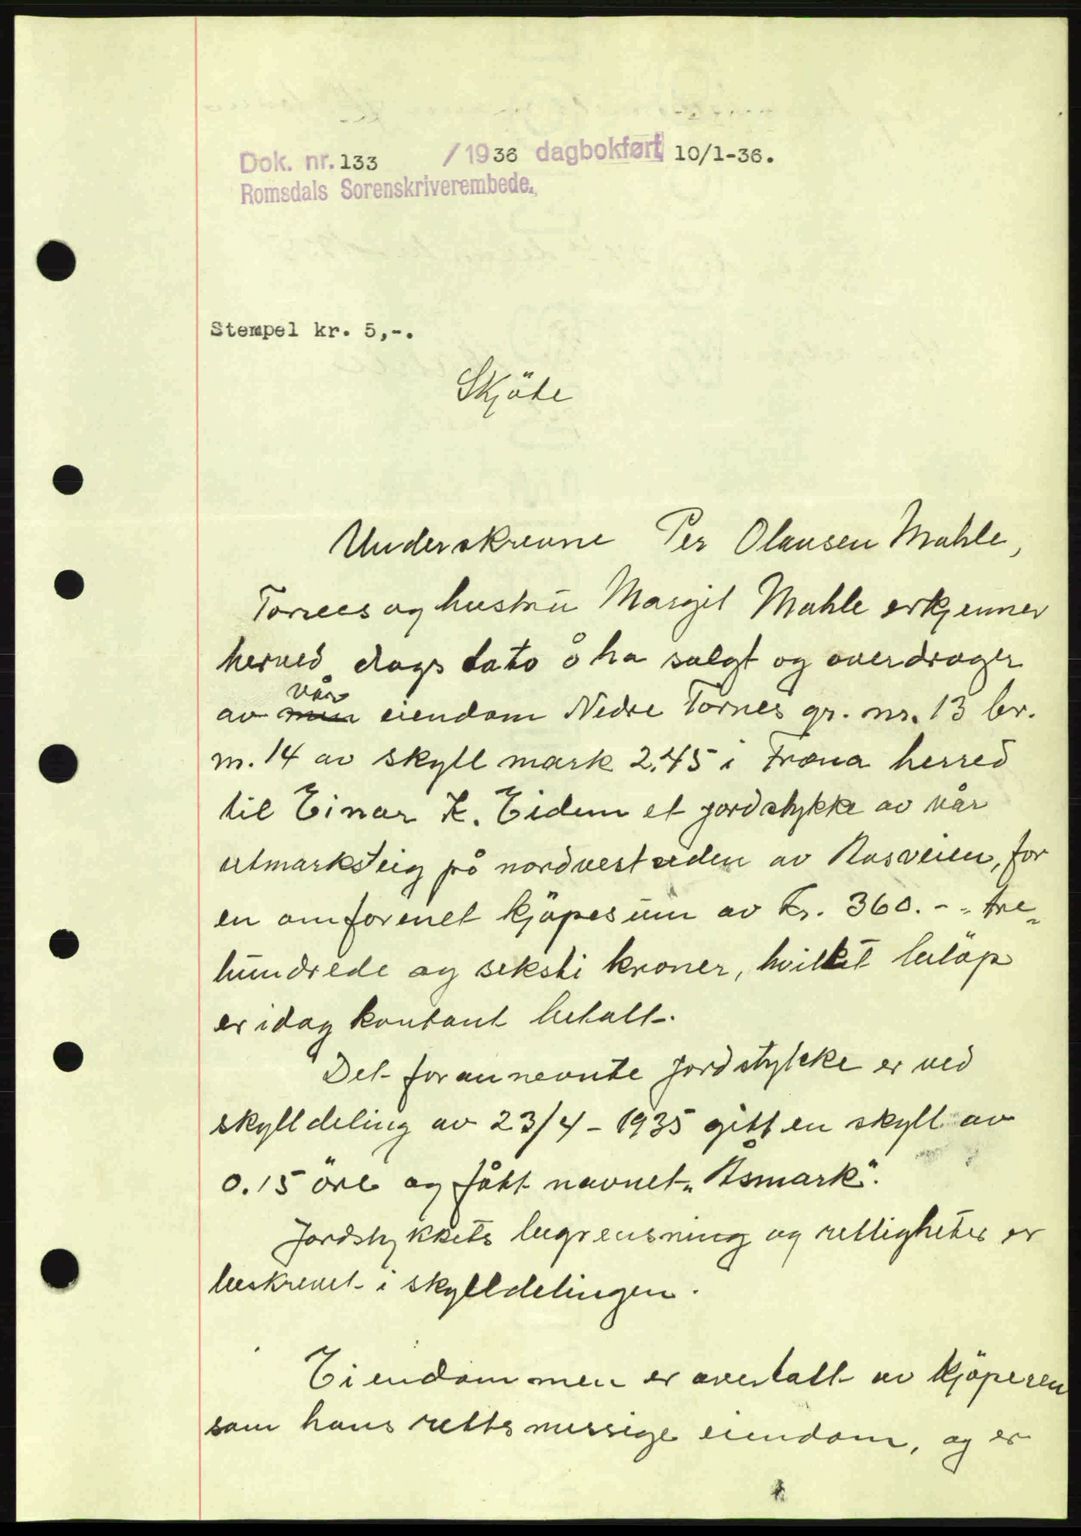 Dok. nr. 133 /1936 dagbokført 10/1-36.
Romsdals Sorenskriverembede.
Stempel kr. 5,-.
Skjöte
Underskrevne Per Olausen Mahle,
Tornes og hustru Margit Mahle erkjenner
herved dags dato å ha solgt og overdrager
vår
av min eiendom Nedre Tornes gr. nr. 13 br.
nr. 14 av skyll mark 2.45 i Fræna herred
til Einar K. Eidem et jordstykke av vår
utmarksteig på nordvestsiden av Aasveien, for
en omforenet kjöpesum av kr. 360.- „ tre„
hundrede og seksti kroner, hvilket belöp
er idag kontant betalt.
Det forannevnte jordstykke er ved
skylldeling av 23/4 - 1935 gitt en skyll av
0.15 öre og fått navnet „Åsmark".
Jordstykkets begrensning og rettigheter er
beskrevet i skylldelingen.
Eiendommen er overtatt av kjöperen
som hans rettsmessige eiendom, og er